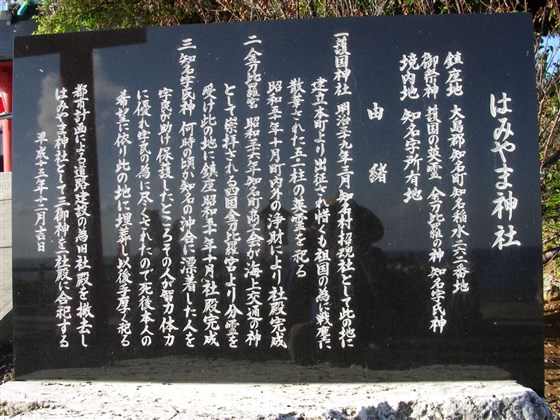 はみやま神社
鎮座地 大島郡知名町知名稲水二六二番地
御祭神 護国の英霊 金刀比羅の神 知名字氏神
境内地 知名字所有地
由緒
一 護国神社 明治三九年三月 知名村招魂社として此の地に
建立本町より出征され惜くも祖国の為に戦塵に
散華された五一一柱の英霊を祀る
昭和三十年十月町内外の浄財により社殿完成
二 金刀比羅宮 昭和三六年知名町商工会が海上交通の神
として崇拝される四国金刀比羅宮より分霊を
受け此の地に鎮座 昭和三七年十月社殿完成
三 知名字氏神 何時の頃か知名の沖合に漂着した人を
字民が助け保護したところこの人が智力体力
に優れ字民の為に尽くされたので死後本人の
希望に依り此の地に埋葬し以後当字で祀る
都市計画による道路建設の為旧社殿を撤去し
はみやま神社として三御神を一社殿に合祀する
平成十五年十二月吉日